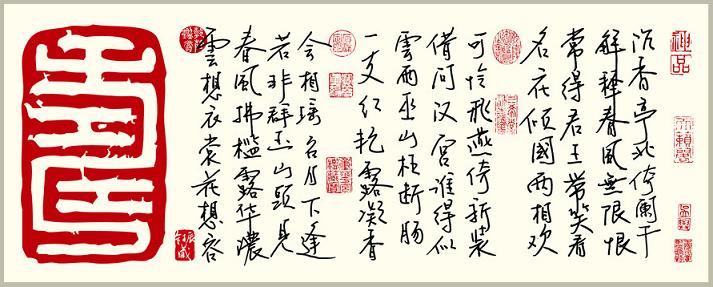 雲想衣裳花想容
春風拂槛露华濃
若非群玉山頭見
会相瑶台月下逢
一支红艳露凝香
雲雨巫山枉断肠
借问汉宫谁得似
可怜飞燕倚新装
名花倾國两相欢
常得君王带笑看
解释春風無限恨
沉香亭北倚阑干
神品